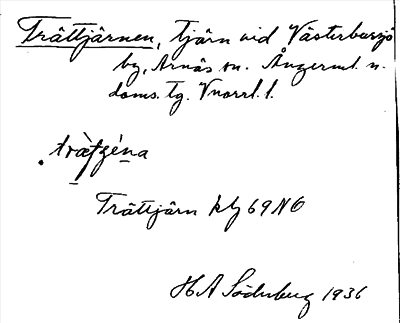 Trättjärnen, tjärn vid Västerbursjö
by, Arnäs sn. Ångerml. n.
doms. tg. Vnorrl. l.
Trättjärn kbl 69 NO
H A Söderberg 1936